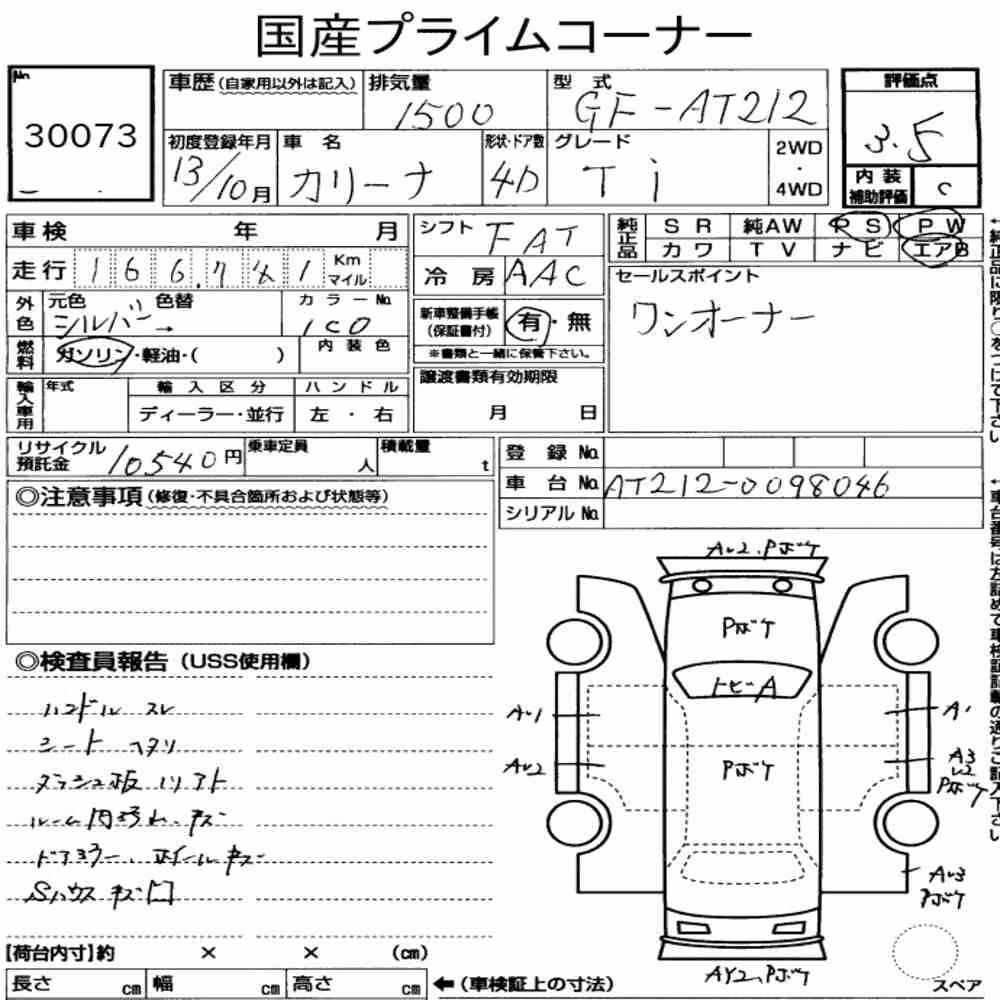 国産プライムコーナー
No.
30073
車歴(自家用以外は記入)
排気量
1500
型式
GF-AT212
評価点
3.5
初度登録年月
13/10月
車名
カリーナ
形状・ドア数
4D
グレード
Ti
2WD
・
4WD
内装
補助評価
C
車検 年 月
シフト
FAT
純正品
SR 純AW PS PW
カワ TV ナビ エアB
走行 166,7 1 Km
マイル
冷房
AAC
セールスポイント
ワンオーナー
外色
元色 色替
シルバー→
カラーNo.
1C0
新車整備手帳
(保証書付)
有・無
※書類と一緒に保管下さい。
燃料
ガソリン・軽油・( )
内装色
輸入車用
年式
輸入区分
ハンドル
ディーラー・並行
左・右
譲渡書類有効期限
月 日
リサイクル
預託金
10540円
乗車定員
人
積載量
t
登録No.
車台No. AT212-0098046
シリアルNo.
◎注意事項(修復・不具合箇所および状態等)
◎検査員報告(USS使用欄)
ハンドル スレ
シート ヘタリ
ダッシュ板 ソリアト
ルーム内汚れ、キズ
ドアミラー、ホイールキズ
Sハウスキズ凹
[荷台内寸]約 × × (cm)
長さ cm 幅 cm 高さ cm ←(車検証上の寸法)
AU2、Pボケ
Pボケ
トビA
AU1
A1
AU2
Pボケ
A3
U2
Pボケ
AU3
Pボケ
AY2、Pボケ
スペア
←純正品に限り○をつけて下さい
←車台番号は左詰めで車検証記載の通りご記入下さい